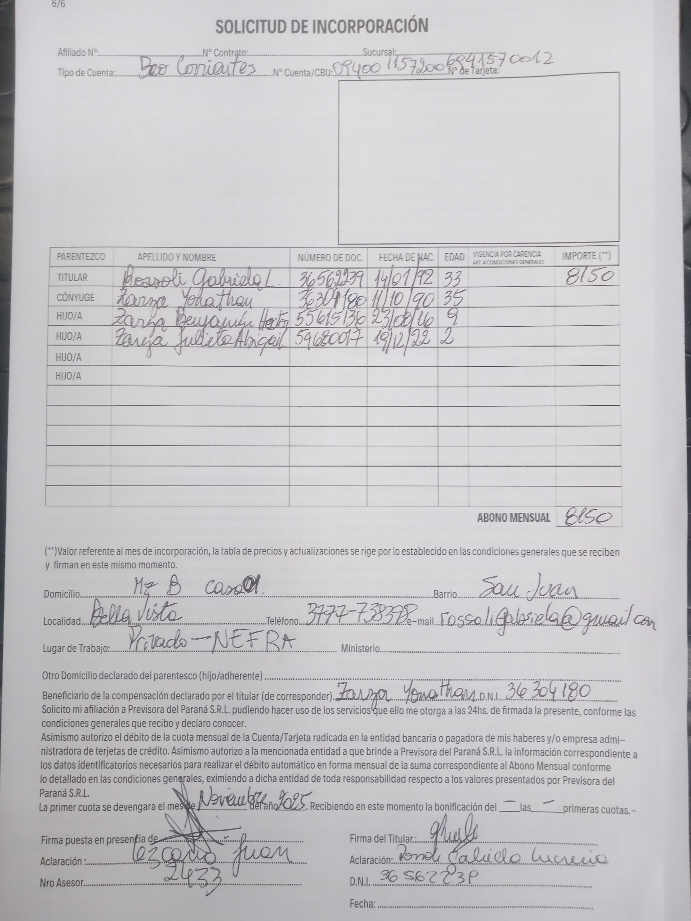 6/6
SOLICITUD DE INCORPORACIÓN
Afiliado Nº: Nº Contrato: Sucursal:
Tipo de Cuenta: Bco Corrientes Nº Cuenta/CBU: Nº de Tarjeta:
PARENTEZCO APELLIDO Y NOMBRE NÚMERO DE DOC. FECHA DE NAC. EDAD VIGENCIA POR CARENCIA IMPORTE (**)
ART. 4 CONDICIONES GENERALES
TITULAR Rossoli Gabriela L. 36562239 14/01/92 33 8150
CÓNYUGE Zarza Yonathan 36304180 11/10/90 35
HIJO/A Zarza Benjamín 55615136 23/08/16 9
HIJO/A Zarza Julieta Abigail 59680017 19/12/22 2
HIJO/A
HIJO/A
ABONO MENSUAL 8150
(**)Valor referente al mes de incorporación, la tabla de precios y actualizaciones se rige por lo establecido en las condiciones generales que se reciben
y firman en este mismo momento.
Domicilio Mz B casa Barrio San Juan
Localidad Bella Vista Teléfono 3777-738398 e-mail rossoligabriela@gmail.com
Lugar de Trabajo: Privado - NEFRA Ministerio:
Otro Domicilio declarado del parentesco (hijo/adherente)
Beneficiario de la compensación declarado por el titular (de corresponder). Zarza Yonathan D.N.I. 36304180
Solicito mi afiliación a Previsora del Paraná S.R.L. pudiendo hacer uso de los servicios que ello me otorga a las 24hs. de firmada la presente, conforme las
condiciones generales que recibo y declaro conocer.
Asimismo autorizo el débito de la cuota mensual de la Cuenta/Tarjeta radicada en la entidad bancaria o pagadora de mis haberes y/o empresa admi-
nistradora de tarjetas de crédito. Asimismo autorizo a la mencionada entidad a que brinde a Previsora del Paraná S.R.L. la información correspondiente a
los datos identificatorios necesarios para realizar el débito automático en forma mensual de la suma correspondiente al Abono Mensual conforme
lo detallado en las condiciones generales, eximiendo a dicha entidad de toda responsabilidad respecto a los valores presentados por Previsora del
Paraná S.R.L.
La primer cuota se devengara el mes de Noviembre del año 2025. Recibiendo en este momento la bonificación del — las — primeras cuotas.-
Firma puesta en presencia de Firma del Titular:
Aclaración: Juan Aclaración: Gabriela Lucrecia
Nro Asesor 2433 D.N.I. 36562239
Fecha: